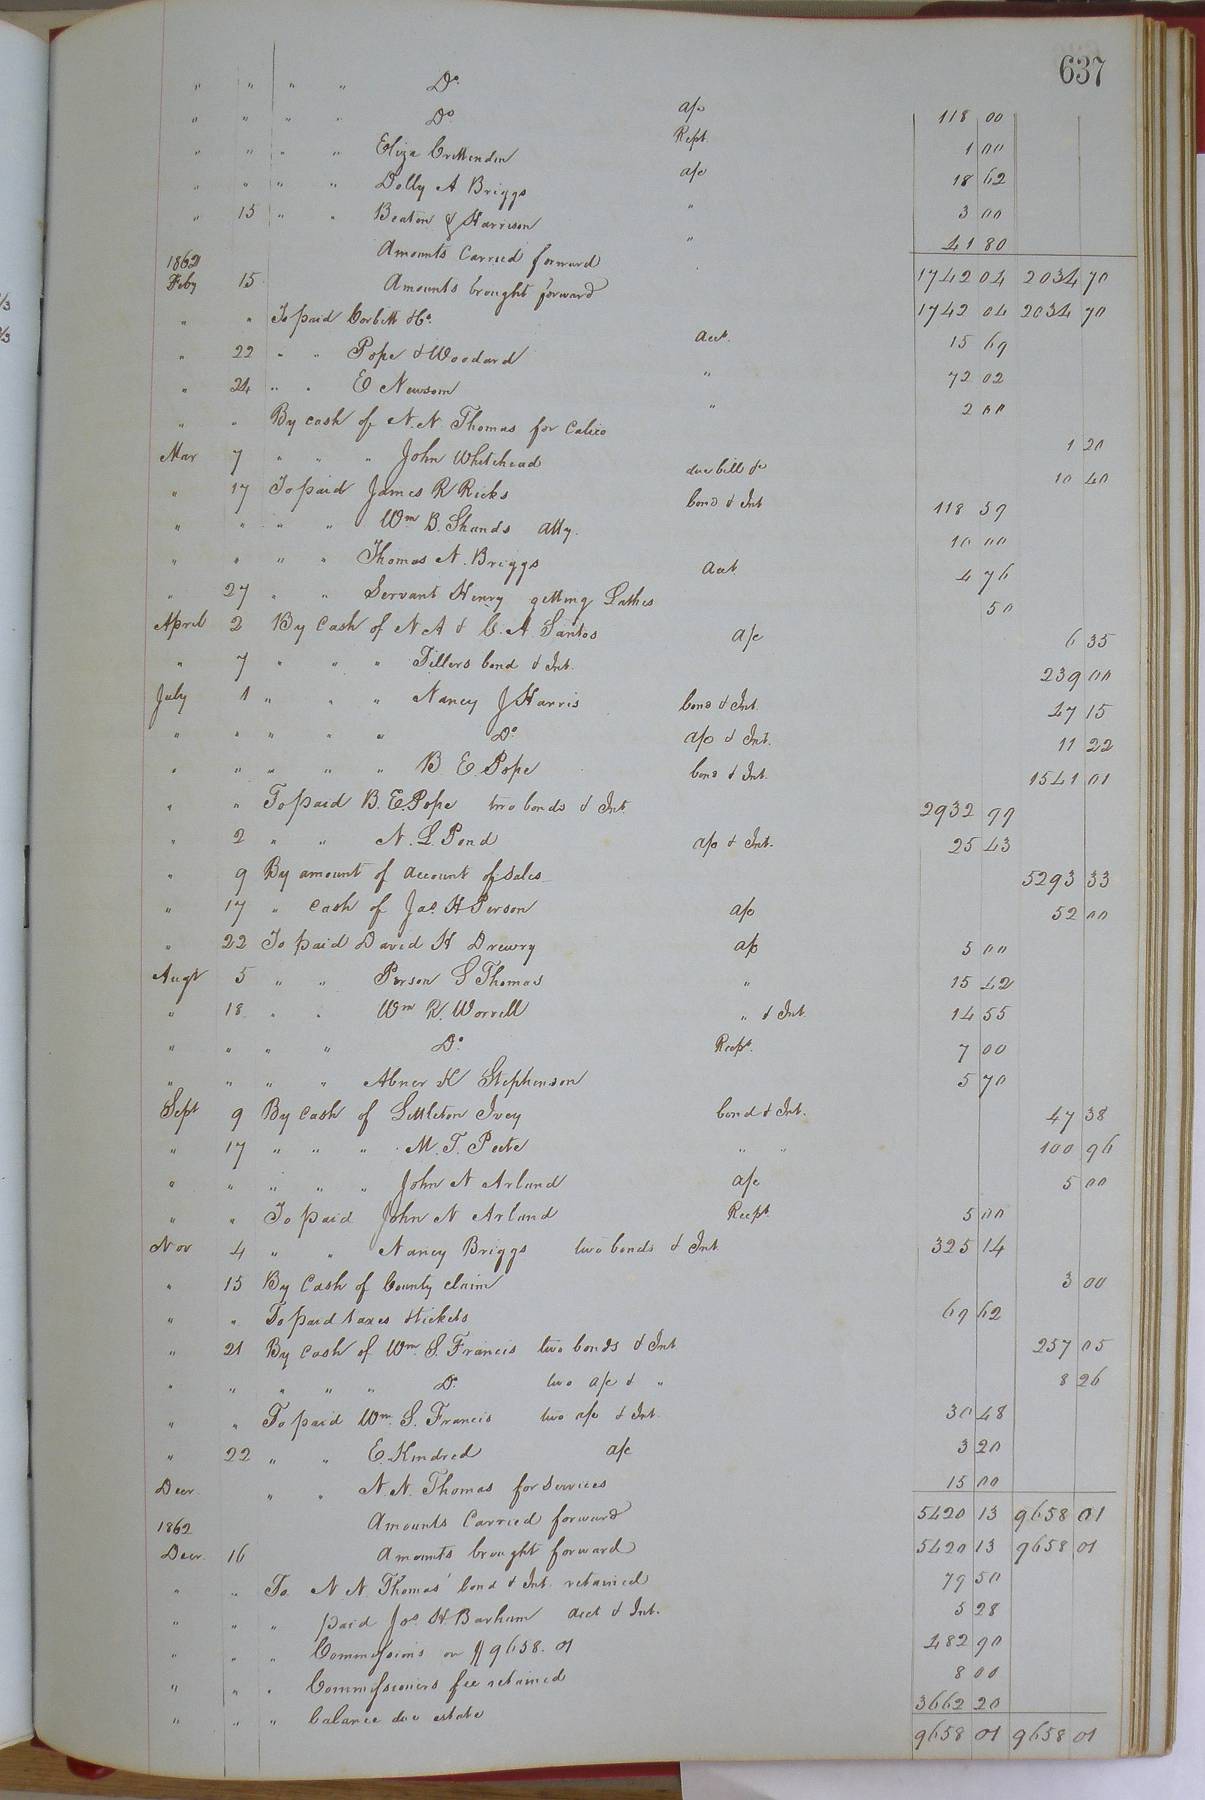 637
" " " " Do
" " " " Do a/c 118 00
" " " " Eliza Crittenden Rept. 1 00
" " " " Dolly A Briggs a/c 18 62
" 15 " " Beaton & Harrison " 3 00
Amounts Carried forward " 41 80
1742 04 2034 70
1862
Feby 15 Amounts brought forward 1742 04 2034 70
" " To paid Corbitt & Co. Acct. 15 69
" 22 " " Pope & Woodard " 72 02
" 24 " " E Newsom " 2 00
" " By cash of N. N. Thomas for Calico 1 20
Mar 7 " " " John Whitehead due bill &c 10 40
" 17 To paid James R Ricks bond & Int 118 59
" " " " Wm B. Shands atty. 10 00
" " " " Thomas N. Briggs Acct. 4 76
" 27 " " Servant Henry getting Laths 50
April 2 By Cash of N A & C. A. Santos a/c 6 35
" 7 " " " Tillers bond & Int. 239 00
July 1 " " " Nancy J Harris bond & Int. 47 15
" " " " " Do a/c & Int. 11 22
" " " " " B E. Pope bond & Int. 1541 01
" " To paid B. E. Pope two bonds & Int. 2932 99
" 2 " " N. L. Pond a/c & Int. 25 43
" 9 By amount of account of sales 5293 33
" 17 " cash of Jas. H Person a/c 52 00
" 22 To paid David H Drewry a/c 5 00
Augt 5 " " Person S Thomas " 15 42
" 18 " " Wm R. Worrell " & Int 14 55
" " " " Do. Recpt. 7 00
" " " " Abner K Stephenson 5 70
Sept 9 By Cash of Littleton Ivey bond & Int. 47 38
" 17 " " " M. T. Peete " " 100 96
" " " " " John N Arland a/c 5 00
" " To paid John N Arland Recpt 5 00
Nov 4 " " Nancy Briggs two bonds & Int 325 14
" 15 By Cash of County claim 3 00
" " To paid taxes & tickets 69 62
" 21 By Cash of Wm. S. Francis two bonds & Int 257 05
" " " " " Do. two a/c & " 8 26
" " To paid Wm. S. Francis two a/c & Int. 30 48
" 22 " " E. Kindred a/c 3 20
Decr. " " N. N. Thomas for services 15 00
Amounts Carried forward 5420 13 9658 01
1862
Decr. 16 Amounts brought forward 5420 13 9658 01
" " To N N. Thomas' bond & Int. retained 79 50
" " " paid Jos. H. Barham acct & Int. 5 28
" " " Commissions on $9658.01 482 90
" " " Commissioners fee retained 8 00
" " " balance due estate 3662 20
9658 01 9658 01